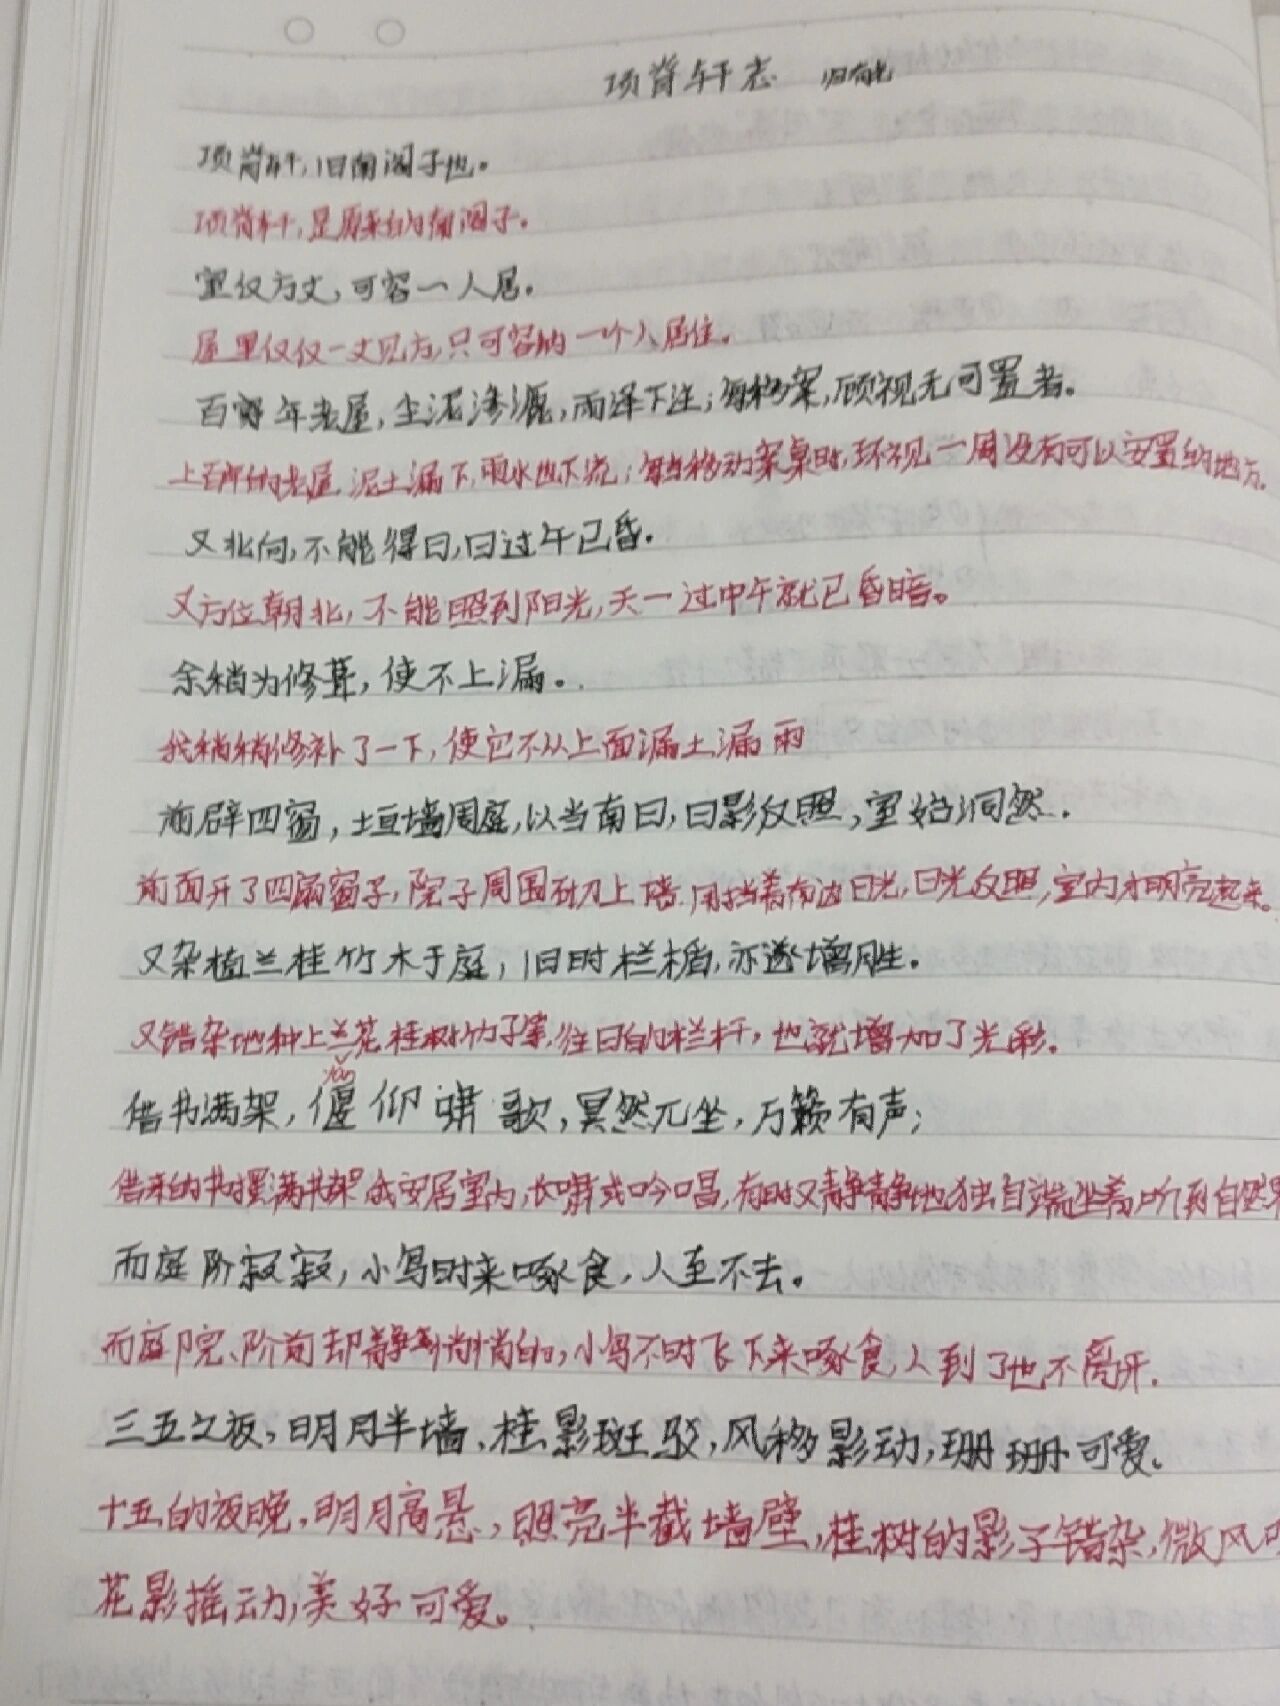 项脊轩志 归有光
项脊轩，旧南阁子也。
项脊轩，是原来的南阁子。
室仅方丈，可容一人居。
屋里仅仅一丈见方，只可容纳一个人居住。
百年老屋，尘泥渗漉，雨泽下注；每移案，顾视无可置者。
上百年的老屋，泥土漏下，雨水也下流；每当移动案桌时，环视一周没有可以安置的地方。
又北向，不能得日，日过午已昏。
又方位朝北，不能照到阳光，天一过中午就已昏暗。
余稍为修葺，使不上漏。
我稍稍修补了一下，使它不从上面漏土漏雨
前辟四窗，垣墙周庭，以当南日，日影反照，室始洞然。
前面开了四扇窗子，院子周围砌上墙，用挡着南边日光，日光反照，室内才明亮起来。
又杂植兰桂竹木于庭，旧时栏楯，亦遂增胜。
又错杂地种上兰花桂树竹子等，往日的栏杆，也就增加了光彩。
借书满架，偃仰啸歌，冥然兀坐，万籁有声；
借来的书摆满书架，我安居室内，长啸或吟唱，有时又静静地独自端坐着，听到自然界
而庭阶寂寂，小鸟时来啄食，人至不去。
而庭院、阶前却静悄悄的，小鸟不时飞下来啄食，人到了也不离开.
三五之夜，明月半墙，桂影斑驳，风移影动，珊珊可爱。
十五的夜晚，明月高悬，照亮半截墙壁，桂树的影子错杂，微风吹
花影摇动，美好可爱。